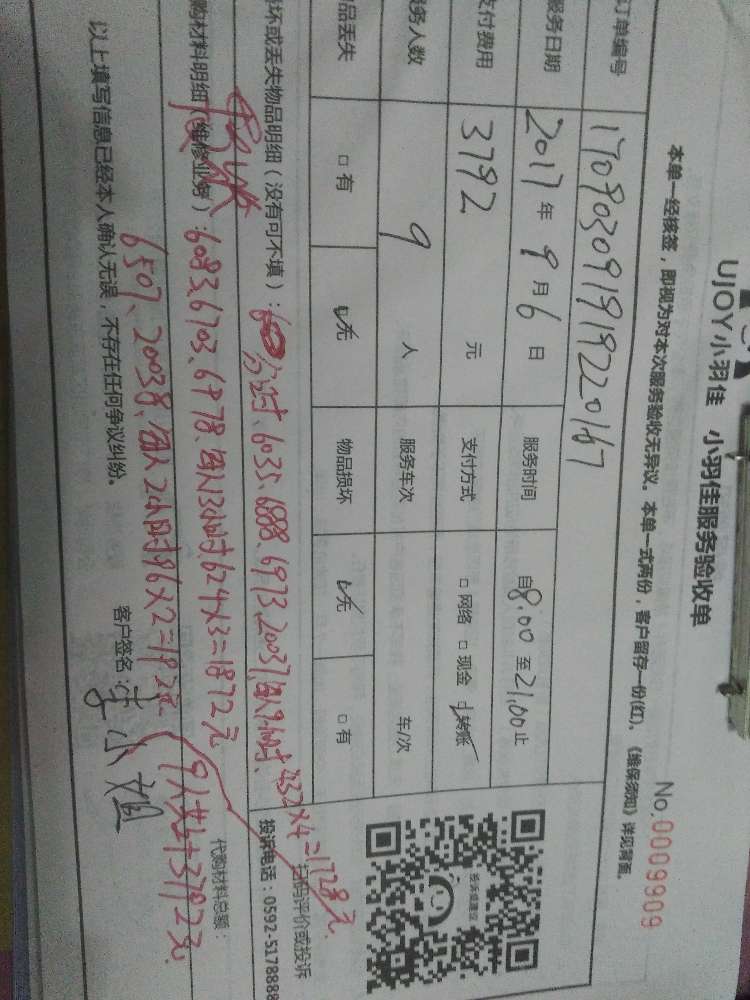 UJOY小羽佳 小羽佳服务验收单
No.0009909
本单一经核签，即视为对本次服务验收无异议。本单一式两份，客户留存一份(红)。《维保须知》详见背面。
订单编号 1709030919192201b7
服务日期 2017年9月6日 服务时间 自8:00至21:00止
支付费用 3792元 支付方式 □网络 □现金 转账
服务人数 9人 服务车次 车/次
物品丢失 □有 无 物品损坏 无 □有
投诉或建议
扫码评价或投诉
投诉电话：0592-5178888
坏或丢失物品明细（没有可不填）：分述:6035、6888、6973、20037,每人9小时、432×4=1728元.
购材料明细（维修业务）：6083、6703、6978、每人13小时、624×3=1872元
代购材料总额：
6507、20038、每人2小时96×2=192元
9人共计3792元.
以上填写信息已经本人确认无误，不存在任何争议纠纷。
客户签名：李小姐